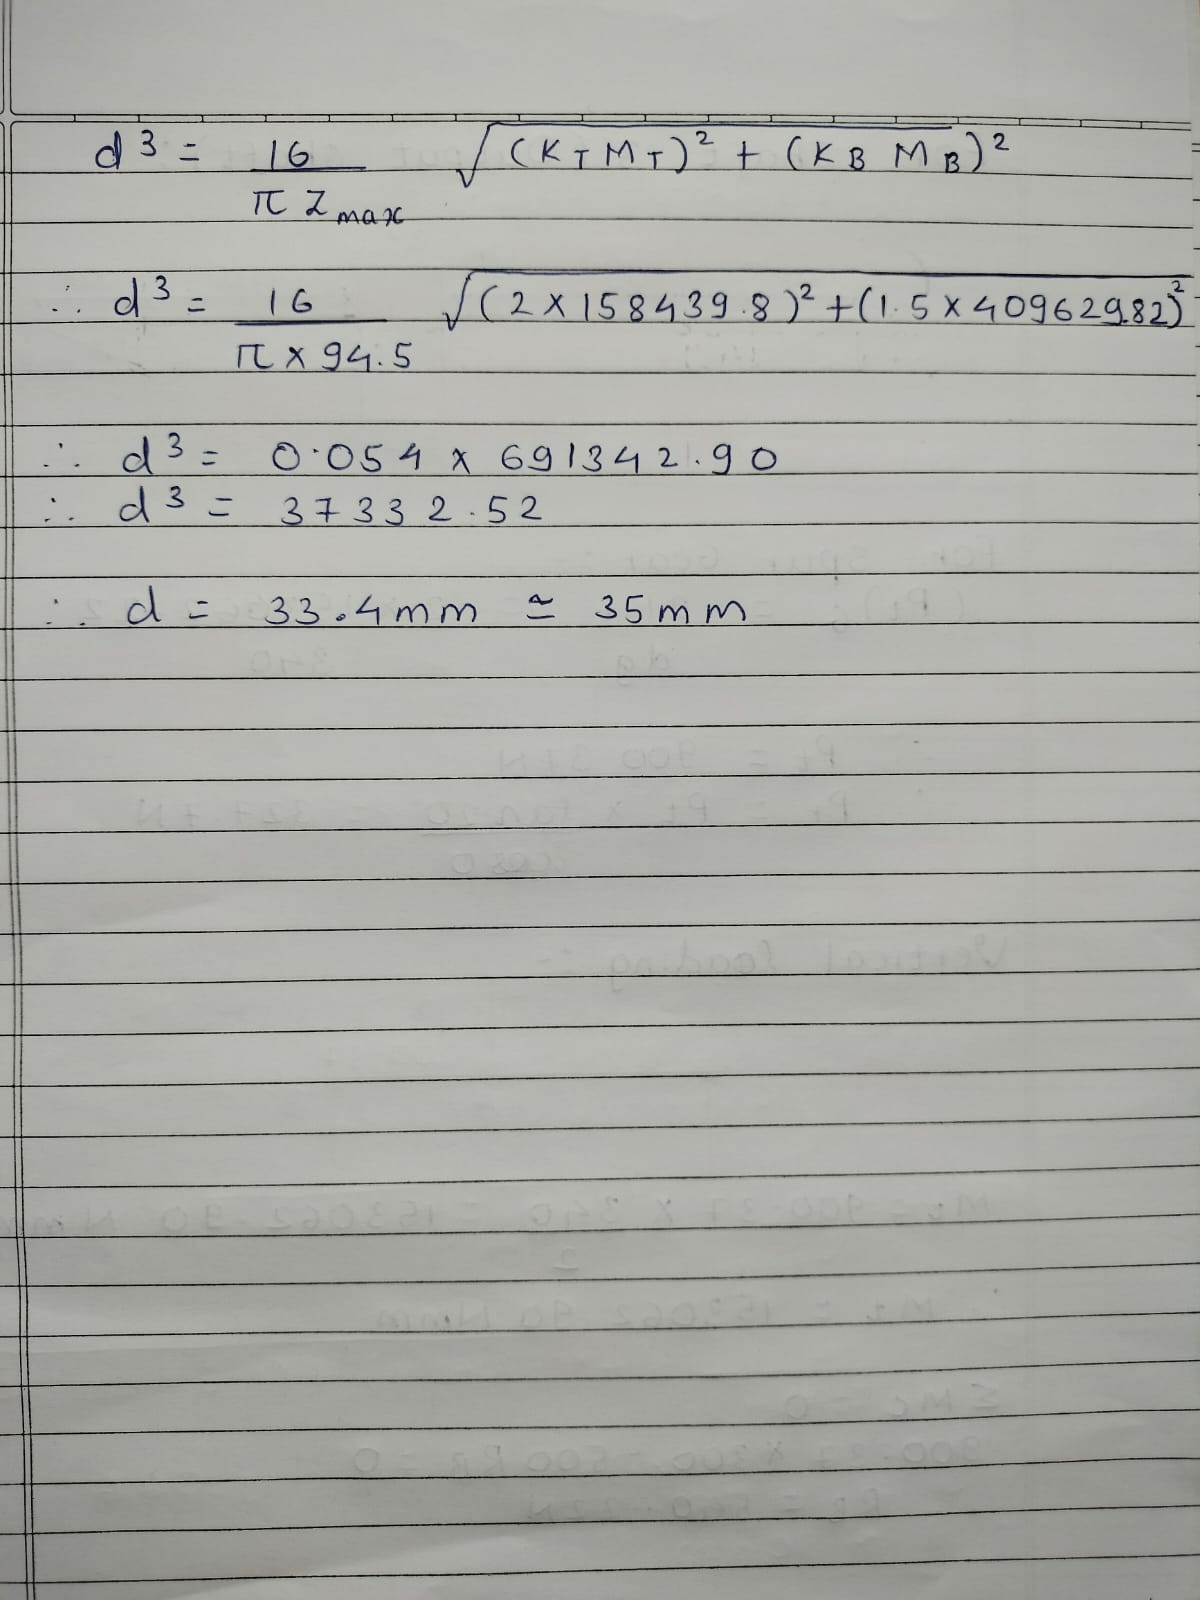 d³ = 16 / π Z max √(K T M T)² + (K B M B)²
∴ d³ = 16 / π x 94.5 √(2 x 158439.8)² + (1.5 x 409629.82)²
∴ d³ = 0.054 x 691342.90
∴ d³ = 37332.52
∴ d = 33.4mm ≃ 35mm